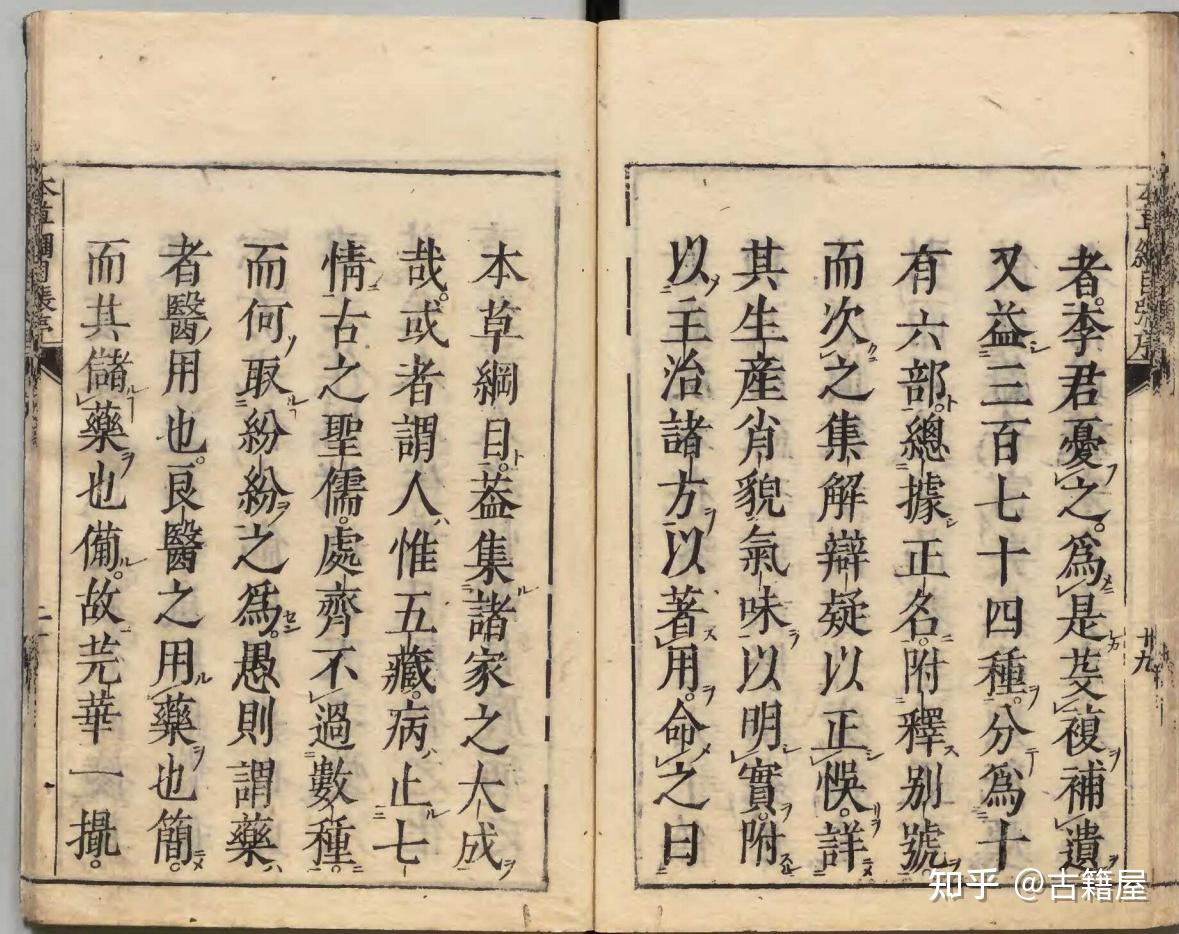 本草綱目張序
廿九
者。李君憂之。爲是芟複補遺
又益三百七十四種。分爲十
有六部。總據正名。附釋别號
而次之集解辯疑以正悞。詳
其生産肖貌氣味以明實。附
以主治諸方以著用。命之曰
本草綱目。葢集諸家之大成
哉。或者謂人惟五藏。病止七
情古之聖儒。處齊不過數種。
而何取紛紛之爲。愚則謂藥
者醫用也。良醫之用藥也簡。
而其儲藥也備。故芫華一撮。
本草綱目張序
知乎 @古籍屋